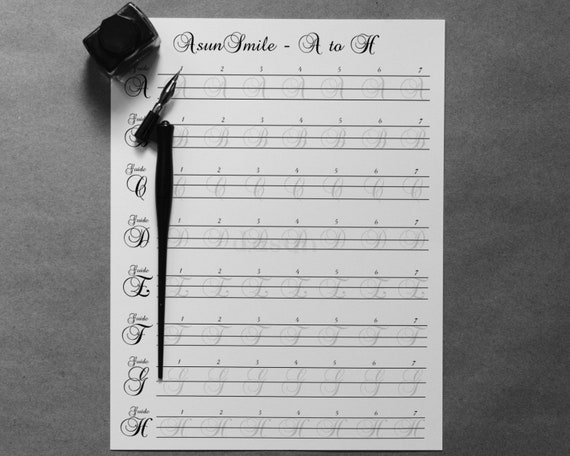 AsunSmile - A to H
1 2 3 4 5 6 7
A A A A A A A A
1 2 3 4 5 6 7
B B B B B B B
Guide 1 2 3 4 5 6 7
C C C C C C C C
Guide 1 2 3 4 5 6 7
D D D D D D D D
Guide 1 2 3 4 5 6 7
E E E E E E E E
Guide 1 2 3 4 5 6 7
F F F F F F F F
Guide 1 2 3 4 5 6 7
G G G G G G G G
Guide 1 2 3 4 5 6 7
H H H H H H H H